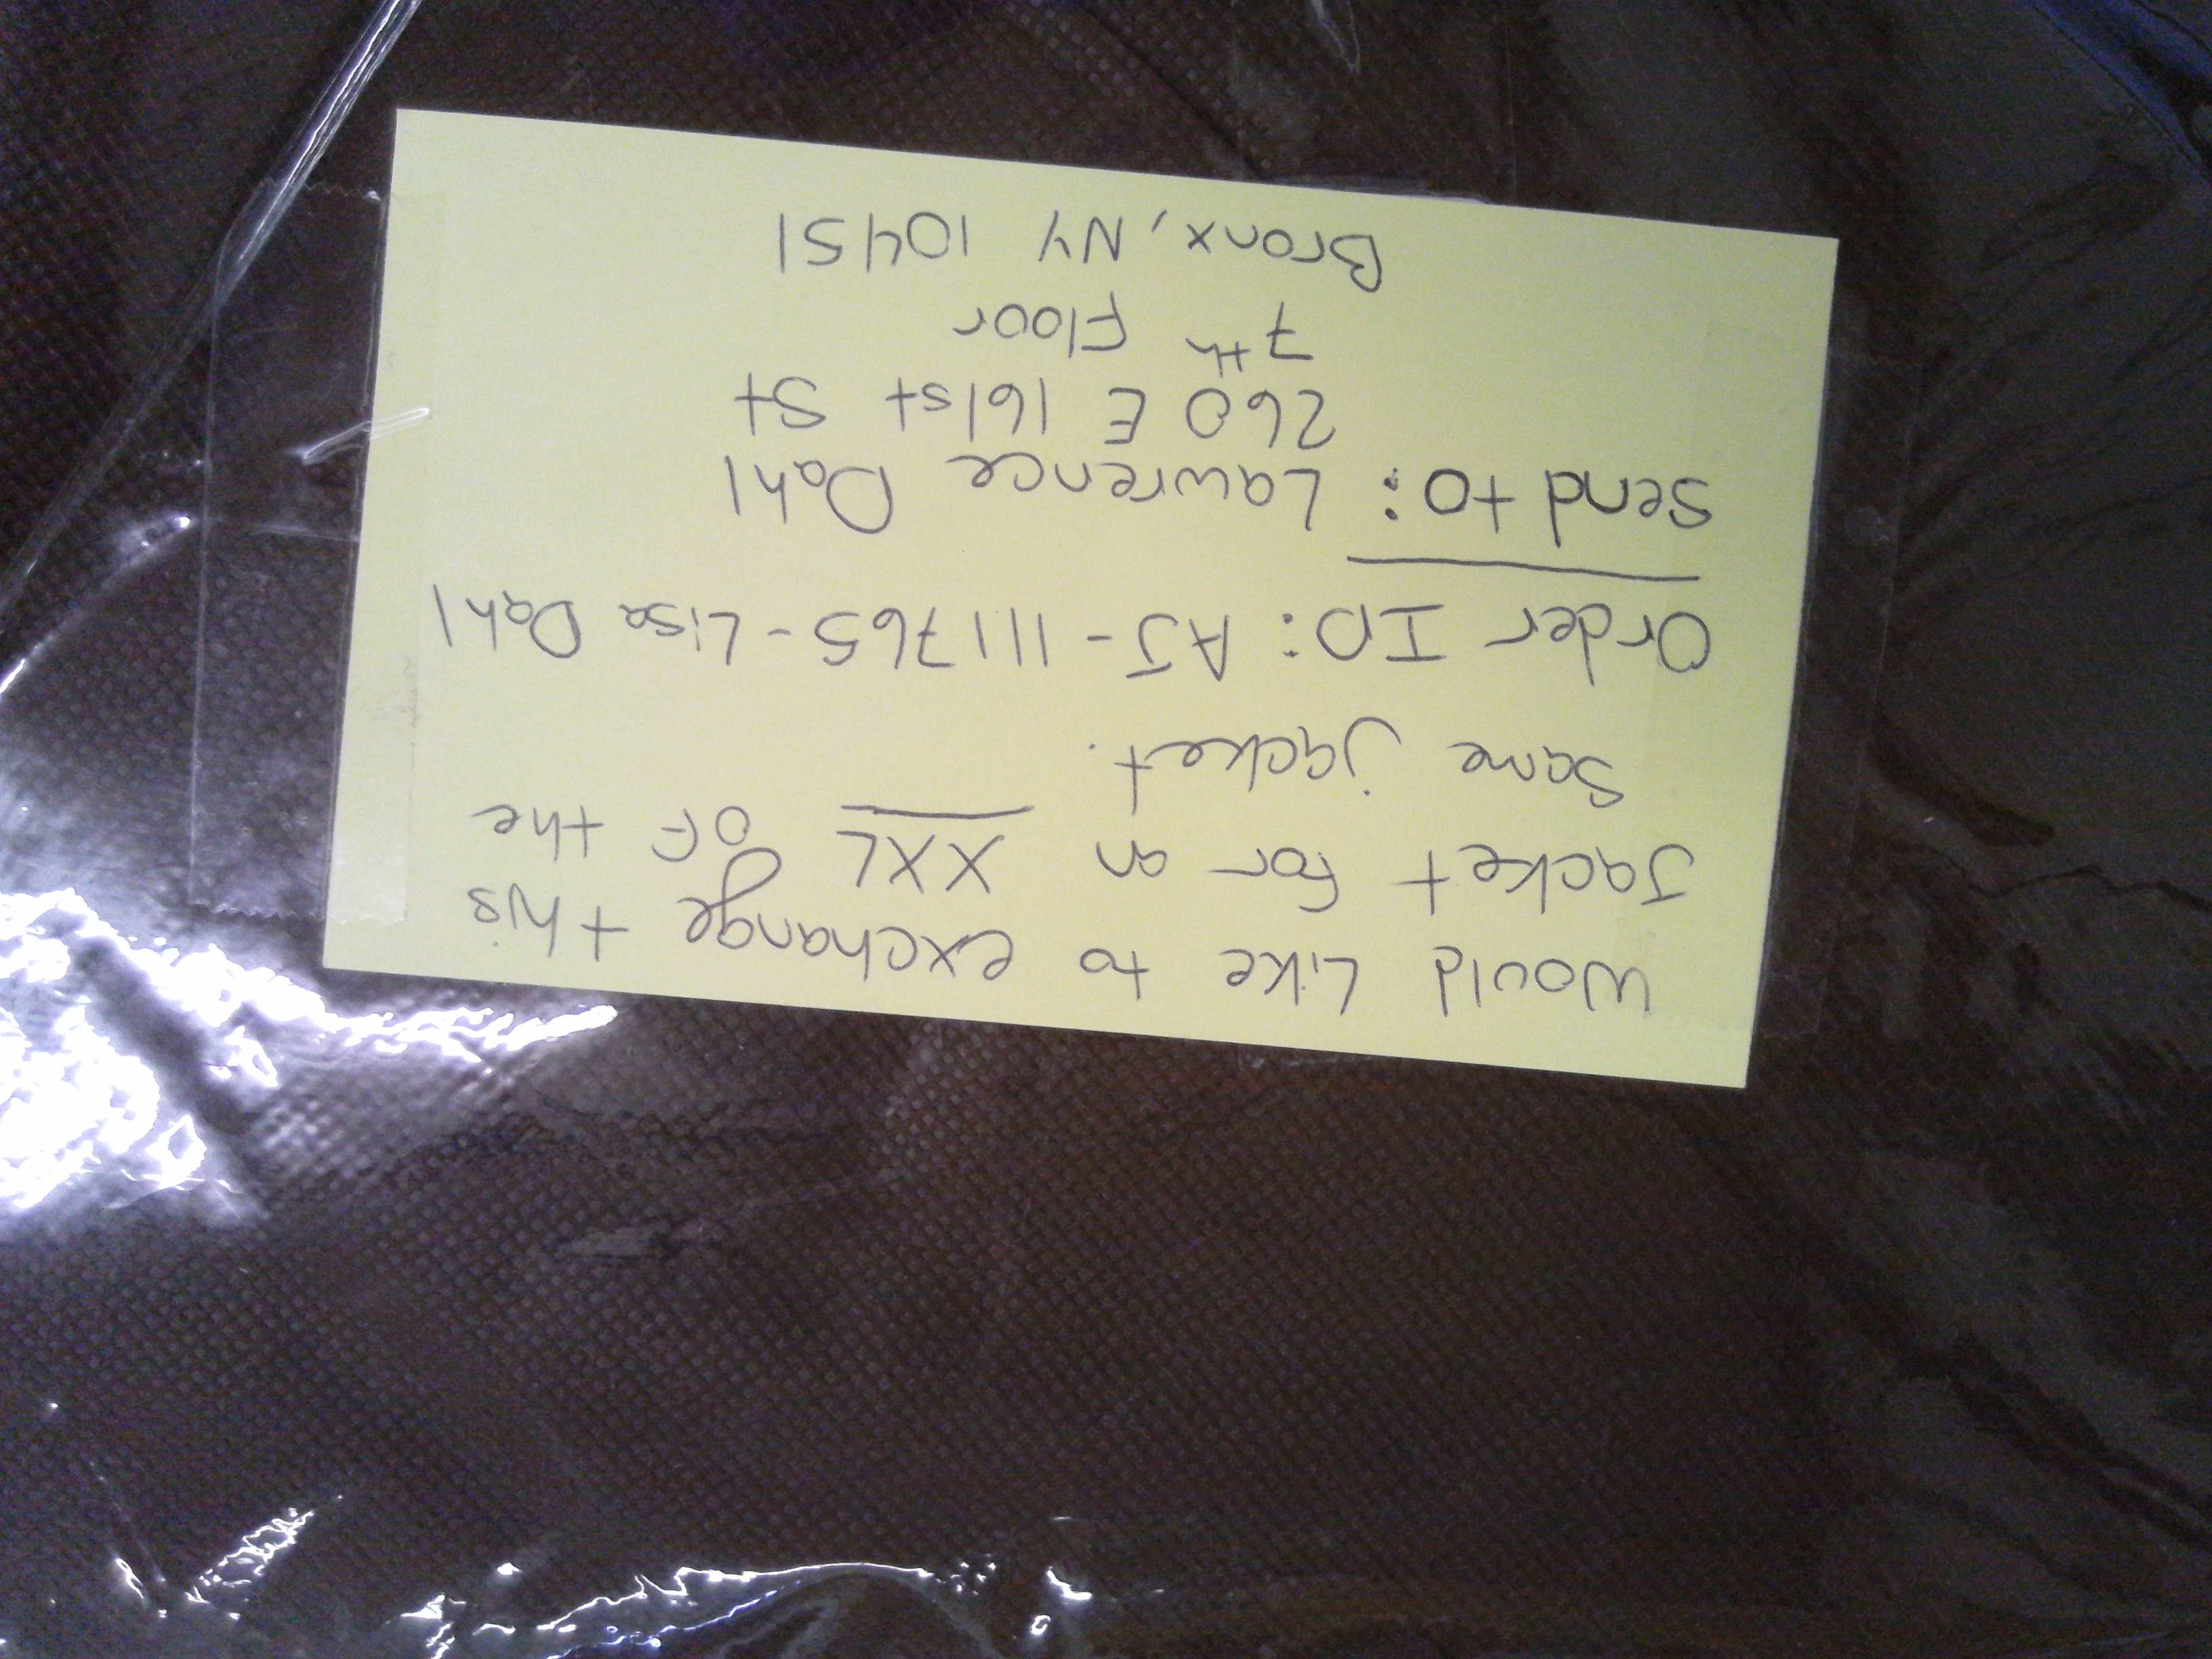 Would Like to exchange this
Jacket for an XXL of the
same jacket.
Order ID: AJ-111765-Lisa Dahl
Send to: Lawrence Dahl
260 E 161st St
7th Floor
Bronx, NY 10451